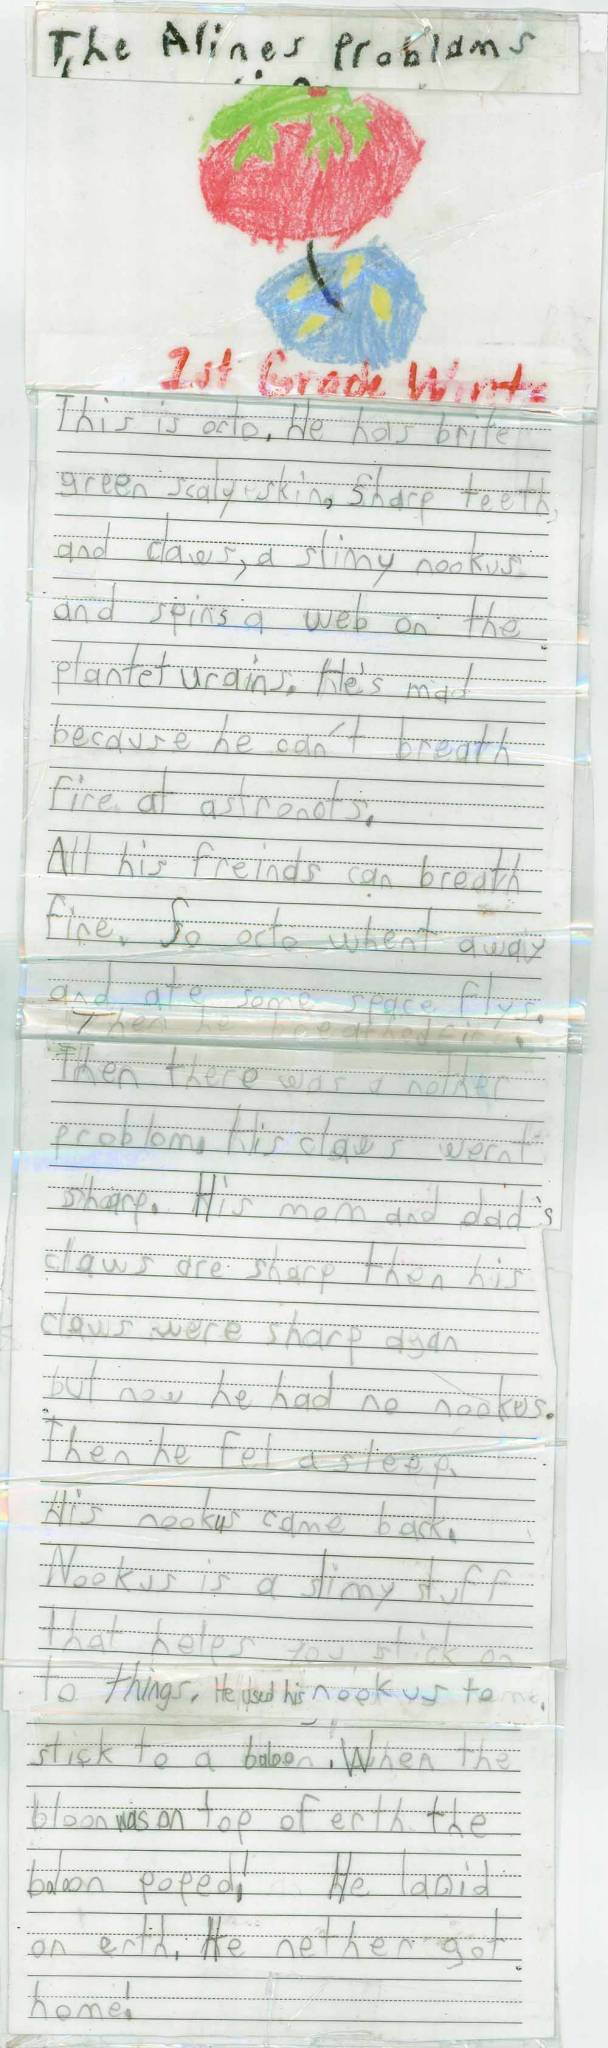 The Alines Problams
1st Grade
This is octo. He has brite
green scaly skin, Sharp teeth,
and claws, a slimy nookus
and spins a web on the
plantet urains. He's mad
because he can't breath
fire at astronots.
All his freinds can breath
fire. So octo whent away
and ate some space flys.
Then he
Then there was a nother
problom. His claws wernt
sharp. His mom and dad's
claws are sharp then his
claws were sharp agan
but now he had no nookus.
Then he fel asleep.
His nookus came back.
Nookus is a slimy stuff
that helps you stick on
to things. He used his nookus to
stick to a baloon. When the
bloon was on top of erth the
baloon poped! He landid
on erth. He nether got
home!